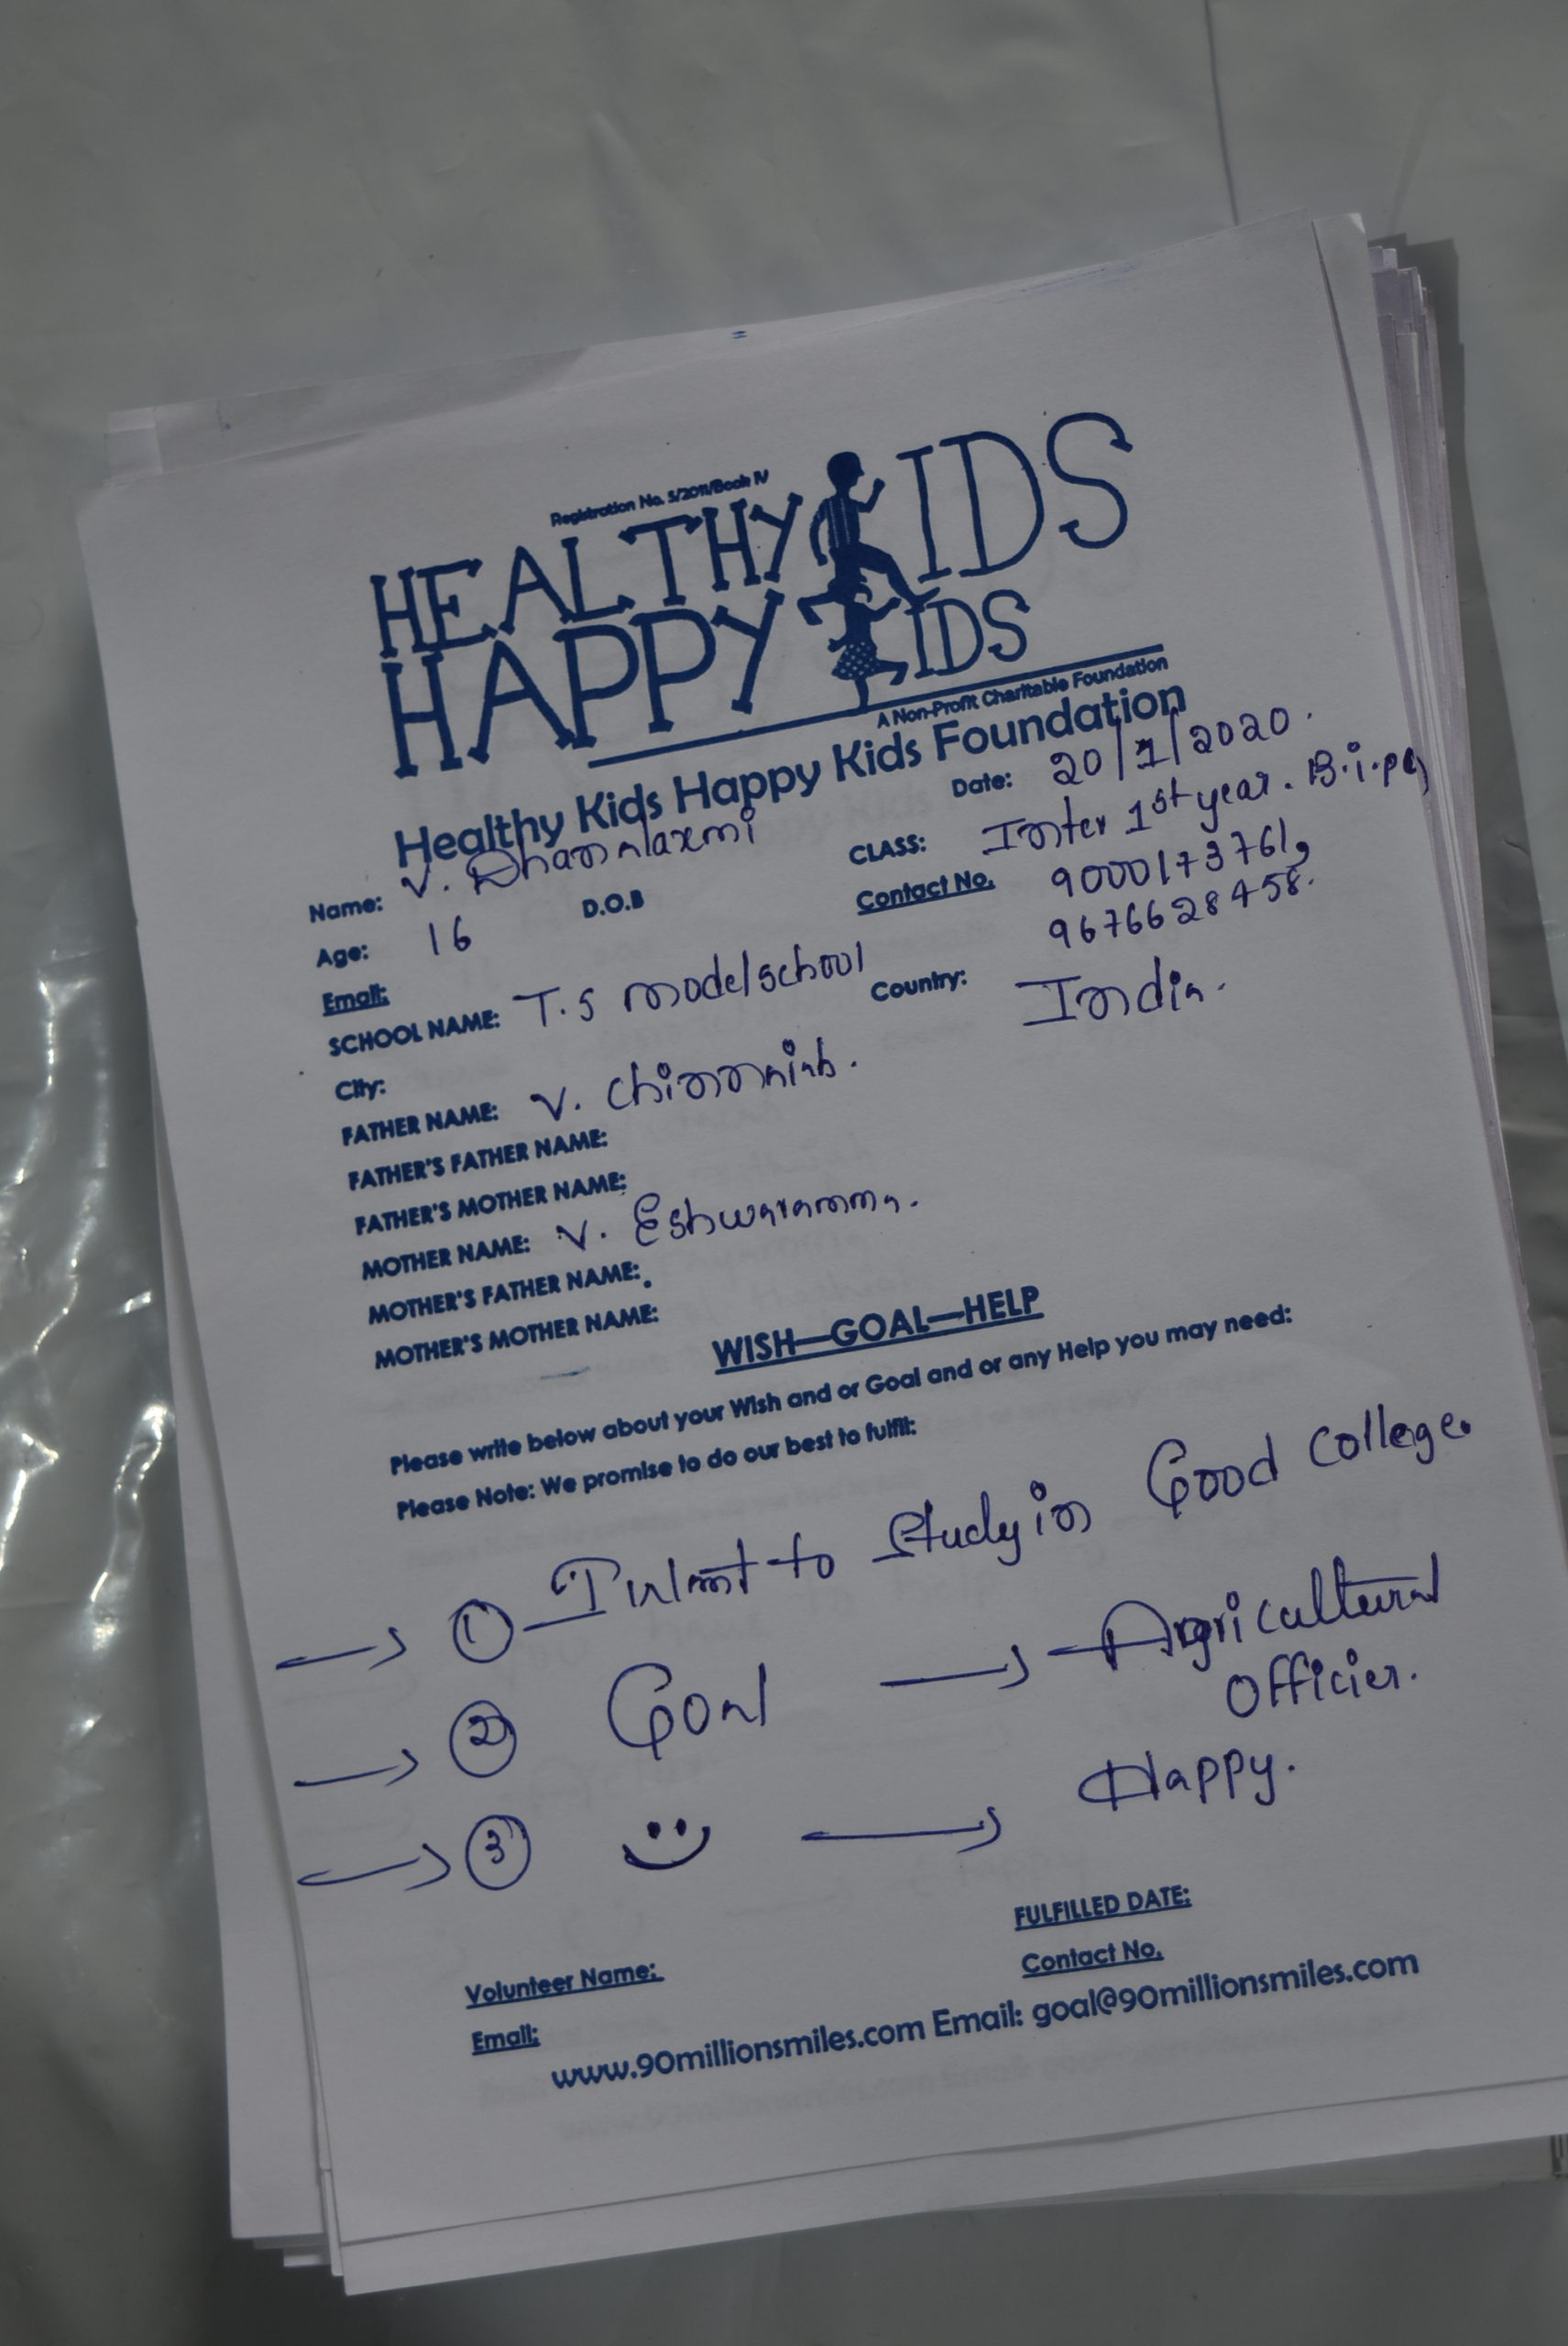 Registration No. 5/2011/Book IV
HEALTHY KIDS
HAPPY KIDS
A Non-Profit Charitable Foundation
Healthy Kids Happy Kids Foundation
Date: 20/1/2020.
Name: V. Dhanalaxmi
CLASS: Inter 1st year. B.i.pc
Age: 16 D.O.B
Contact No. 9000173761,
9676628458.
Email:
SCHOOL NAME: T.S model school
Country: India.
City:
FATHER NAME: V. Chinnaiah.
FATHER'S FATHER NAME:
FATHER'S MOTHER NAME:
MOTHER NAME: V. Eshwaramma.
MOTHER'S FATHER NAME:
MOTHER'S MOTHER NAME:
WISH—GOAL—HELP
Please write below about your Wish and or Goal and or any Help you may need:
Please Note: We promise to do our best to fulfil:
→ ① I want to Study in Good college.
→ ② Goal → Agricultural
Officier.
→ ③ → Happy.
FULFILLED DATE:
Volunteer Name:
Contact No.
Email:
www.90millionsmiles.com Email: goal@90millionsmiles.com